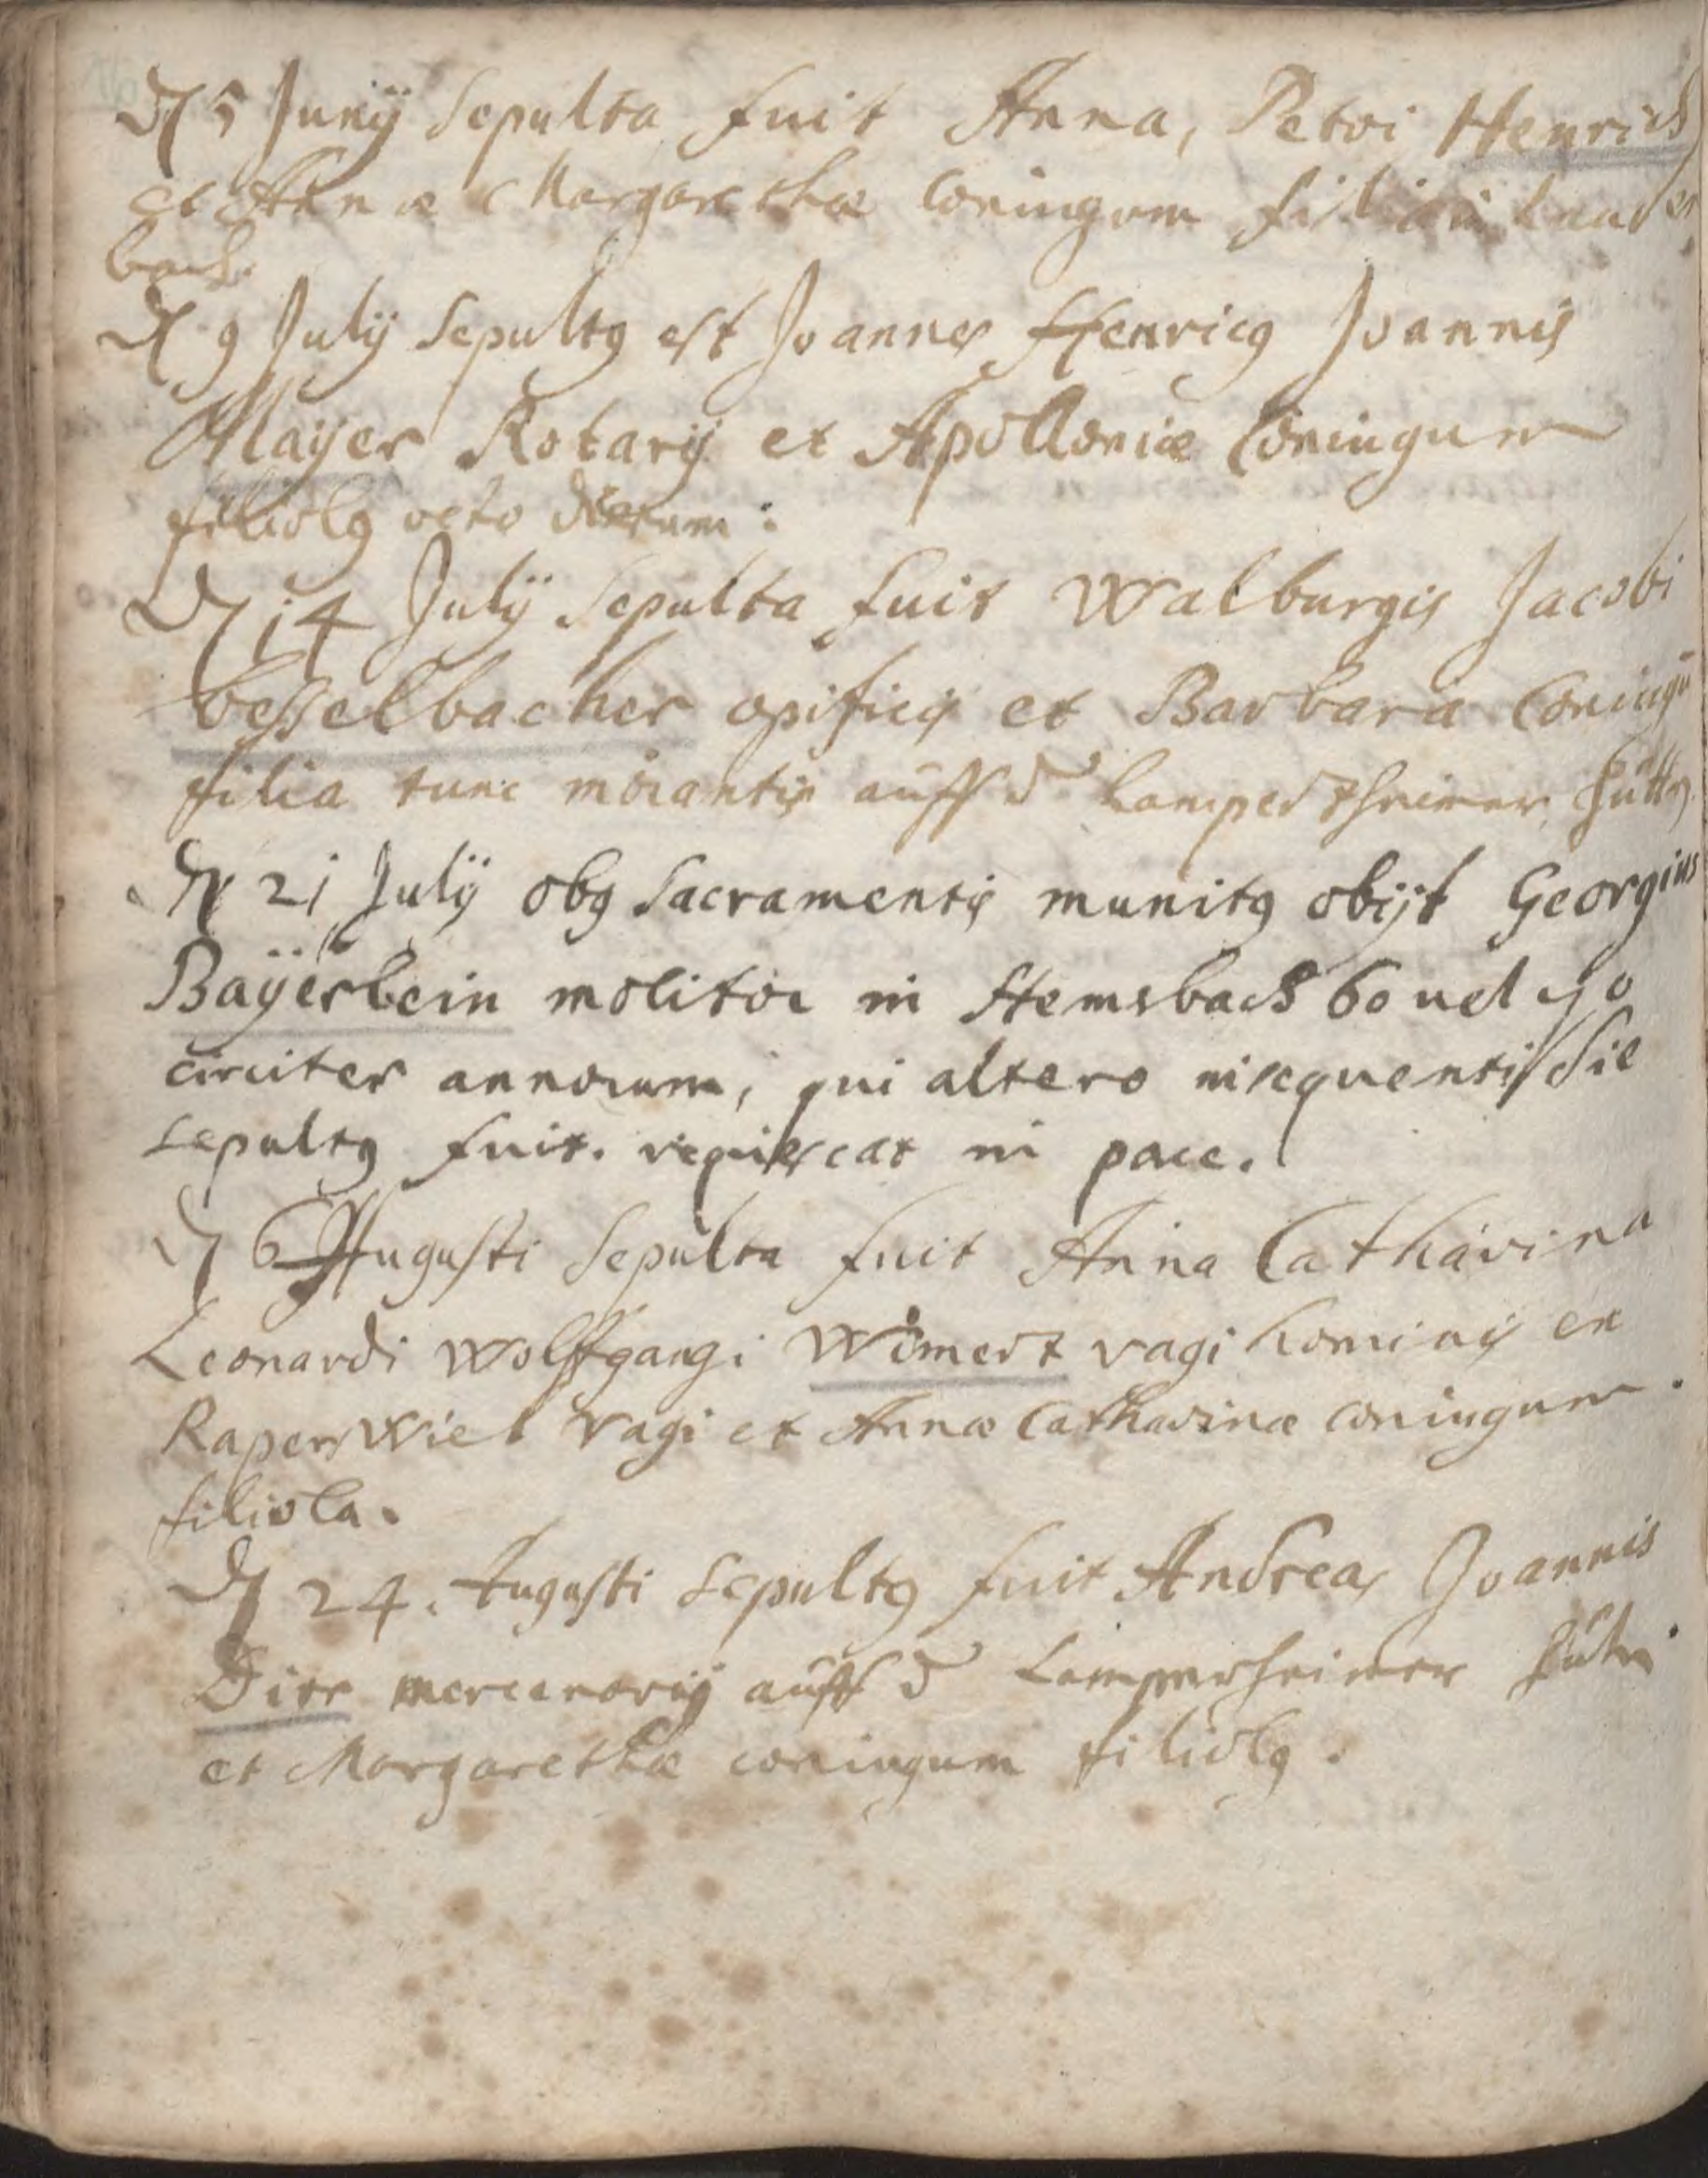 d 5 Junij Sepulta fuit Anna, Petri Henrich
et Annæ Margarethæ Coniugum filia in Lauden
bach.
d 9 July Sepultꝯ est Joannes Henricꝯ Joannis
Mayer Rotarij et Apolloniæ Coniugum
filiolꝯ octo dierum.
d 14 July Sepulta fuit Walburgis Jacobi
besselbacher opificis et Barbara Coniugū
filia tunc morantis auff d Lampertheimer hütt.
d 21 July obꝯ Sacramentis munitꝯ obijt Georgius
Bayerlein molitor in Hemsbach 60 uel 70
circiter annorum, qui altero insequenti die
sepultꝯ fuit. requiescat in pace.
d 6 Augusti Sepulta fuit Anna Catharina
Leonardi Wolffgangi Womert vagi hominis ex
Raperswiel vagi et Annæ Catharinæ coniugum
filiola.
d 24. Augusti sepultꝯ fuit Andreas Joannis
Dirr mercenarij auff d Lamperheimer hütten
et Margarethæ coniugum filiolꝯ.